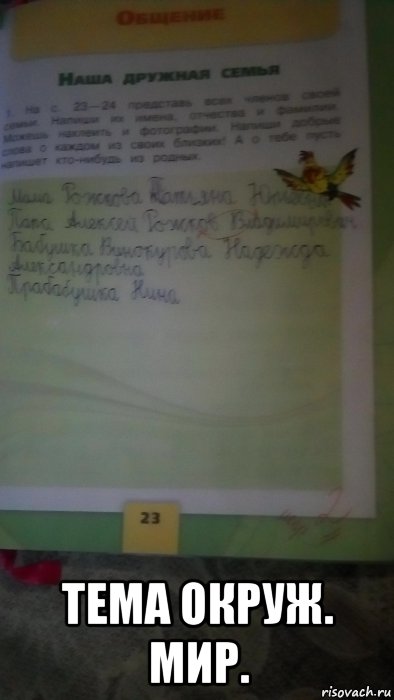 ОБЩЕНИЕ
НАША ДРУЖНАЯ СЕМЬЯ
1. На с. 23—24 представь всех членов своей
семьи. Напиши их имена, отчества и фамилии.
Можешь наклеить и фотографии. Напиши добрые
слова о каждом из своих близких! А о тебе пусть
напишет кто-нибудь из родных.
Мама Рожкова Татьяна
Папа Алексей Рожков Владимирович
Бабушка Винокурова Надежда
Александровна
Прабабушка Нина
2
23
ТЕМА ОКРУЖ.
МИР.
risovach.ru